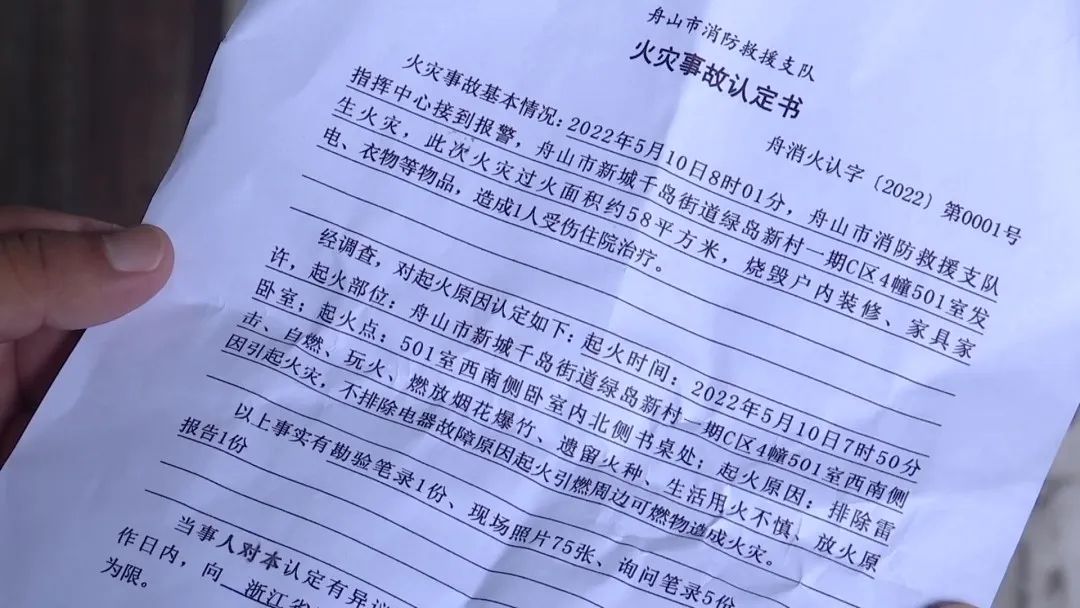 舟山市消防救援支队
火灾事故认定书
舟消火认字〔2022〕第0001号
火灾事故基本情况：2022年5月10日8时01分，舟山市消防救援支队
指挥中心接到报警，舟山市新城千岛街道绿岛新村一期C区4幢501室发
生火灾，此次火灾过火面积约58平方米，烧毁户内装修、家具家
电、衣物等物品，造成1人受伤住院治疗。
经调查，对起火原因认定如下：起火时间：2022年5月10日7时50分
许，起火部位：舟山市新城千岛街道绿岛新村一期C区4幢501室西南侧
卧室；起火点：501室西南侧卧室内北侧书桌处；起火原因：排除雷
击、自燃、玩火、燃放烟花爆竹、遗留火种、生活用火不慎、放火原
因引起火灾，不排除电器故障原因起火引燃周边可燃物造成火灾。
以上事实有勘验笔录1份、现场照片75张、询问笔录5份
报告1份
当事人对本认定有异议
作日内，向 浙江省
为限。